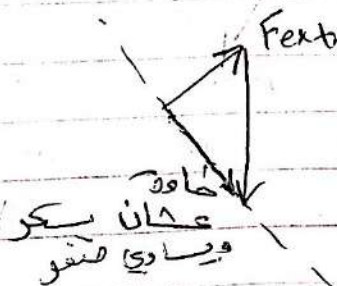 Fext
عشان يسكر
ويساوي صفر